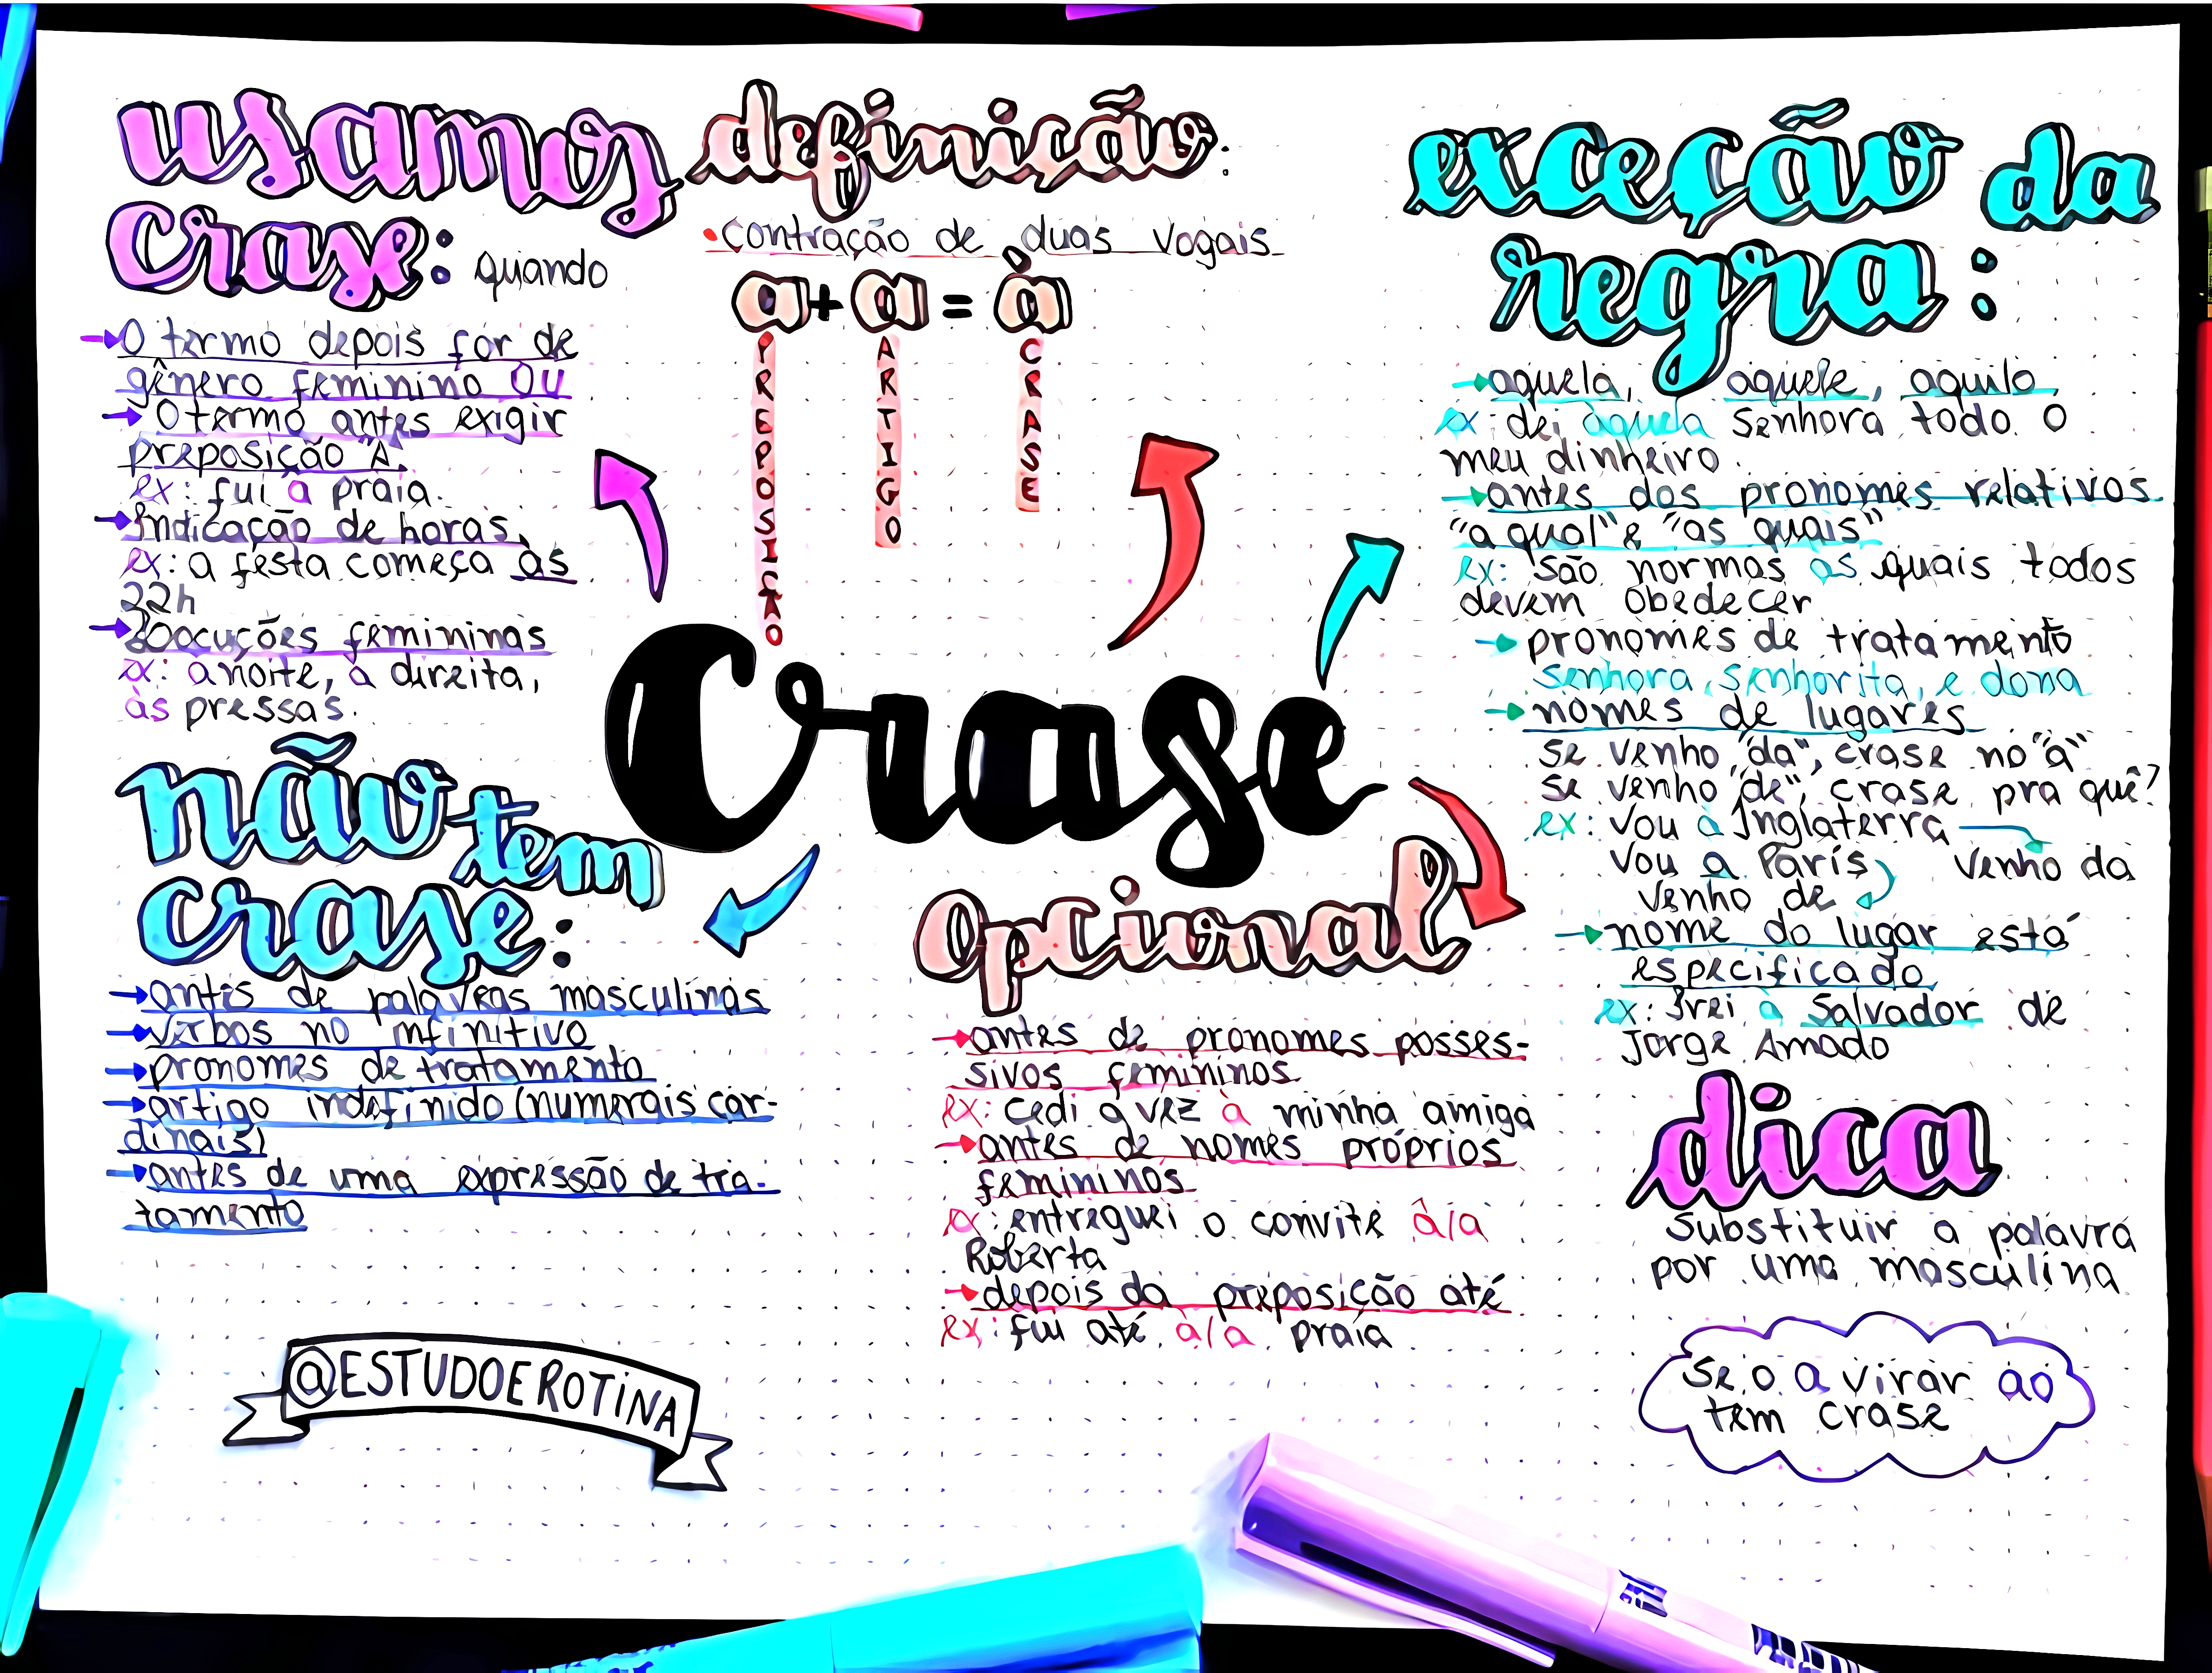 usamos
crase: quando
→O termo depois for de
gênero feminino OU
→O termo antes exigir
preposição "A".
ex: fui à praia.
→Indicação de horas.
ex: a festa começa às
22h
→Locuções femininas
ex: à noite, à direita,
às pressas.
definição:
•contração de duas vogais
a + a = à
PREPOSIÇÃO
ARTIGO
CRASE
Crase
exceção da
regra:
→aquela, aquele, aquilo,
ex: dei àquela senhora todo o
meu dinheiro.
→antes dos pronomes relativos
"a qual" e "as quais"
ex: são normas às quais todos
devem obedecer
→pronomes de tratamento
senhora, senhorita, e dona
→nomes de lugares
se venho "da", crase no "a"
se venho "de", crase pra quê?
ex: Vou à Inglaterra
Vou a París venho da
venho de
→nome do lugar está
especificado
ex: Irei à Salvador de
Jorge Amado
não tem
crase:
→antes de palavras masculinas
→verbos no infinitivo
→pronomes de tratamento
→artigo indefinido (numerais car-
dinais)
→antes de uma expressão de tra-
tamento
Opcional
→antes de pronomes posses-
sivos femininos
ex: cedi a vez à minha amiga
→antes de nomes próprios
femininos
ex: entreguei o convite à/a
Roberta
→depois da preposição até
ex: fui até à/a praia
dica
Substituir a palavra
por uma masculina
Se o a virar ao
tem crase
@ESTUDOEROTINA